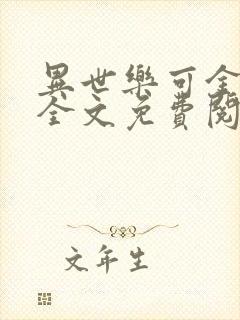 異世樂可全
全文免費閱
文年生